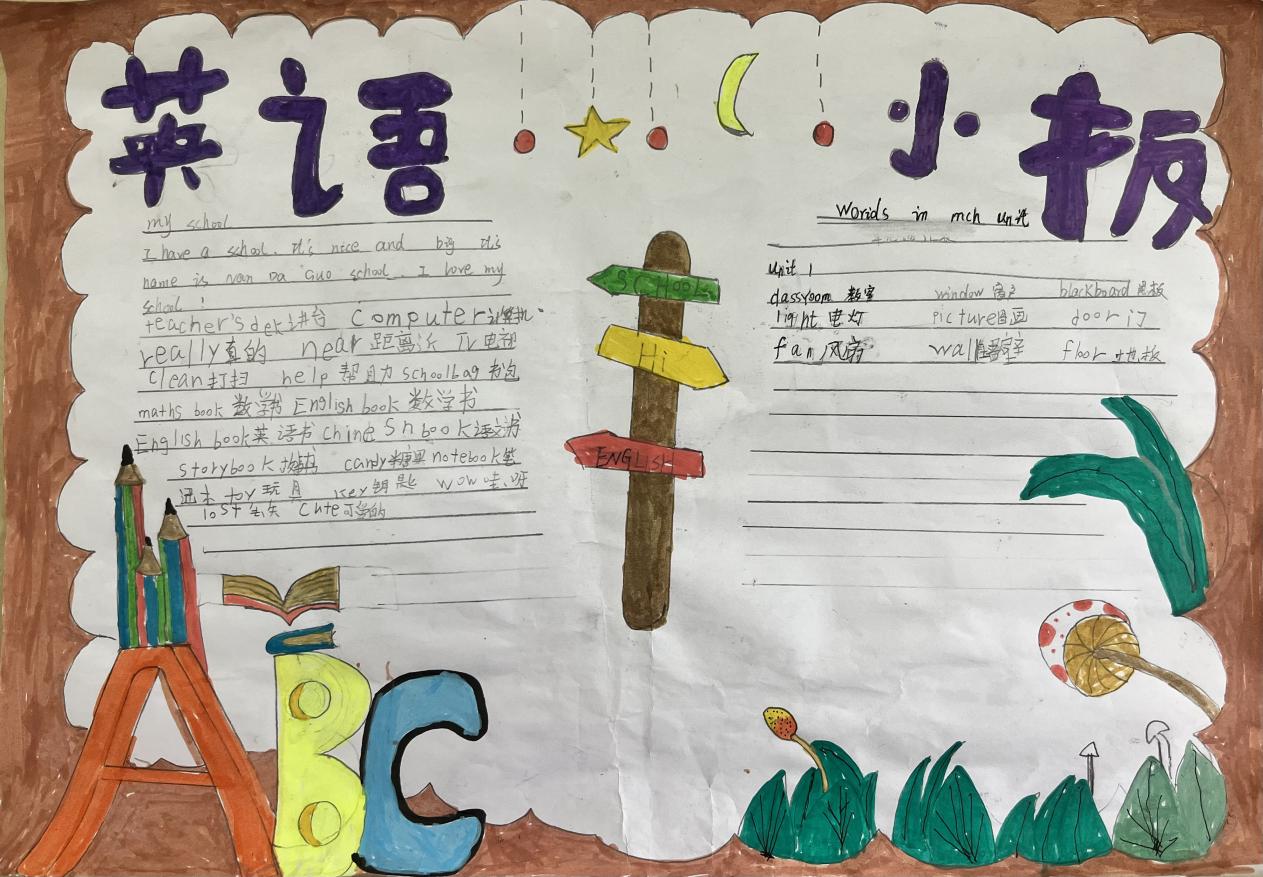 英语小报
my school
I have a school. It's nice and big It's
name is Nan Da Guo school. I love my
school!
teacher's dek 讲台 computer 计算机
really 真的 near 距离近 TV 电视
clean 打扫 help 帮助 schoolbag 书包
maths book 数学书 English book 数学书
English book 英语书 Chinese book 语文书
storybook 故事书 candy 糖果 notebook 笔
记本 toy 玩具 key 钥匙 wow 哇,呀
lost 丢失 cute 可爱的
SCHOOL
Hi
ENGLISH
Worids in mch unit
unit 1
classyoom 教室 window 窗户 blackboard 黑板
light 电灯 picture 图画 door 门
fan 风扇 wall 墙壁 floor 地板
ABC